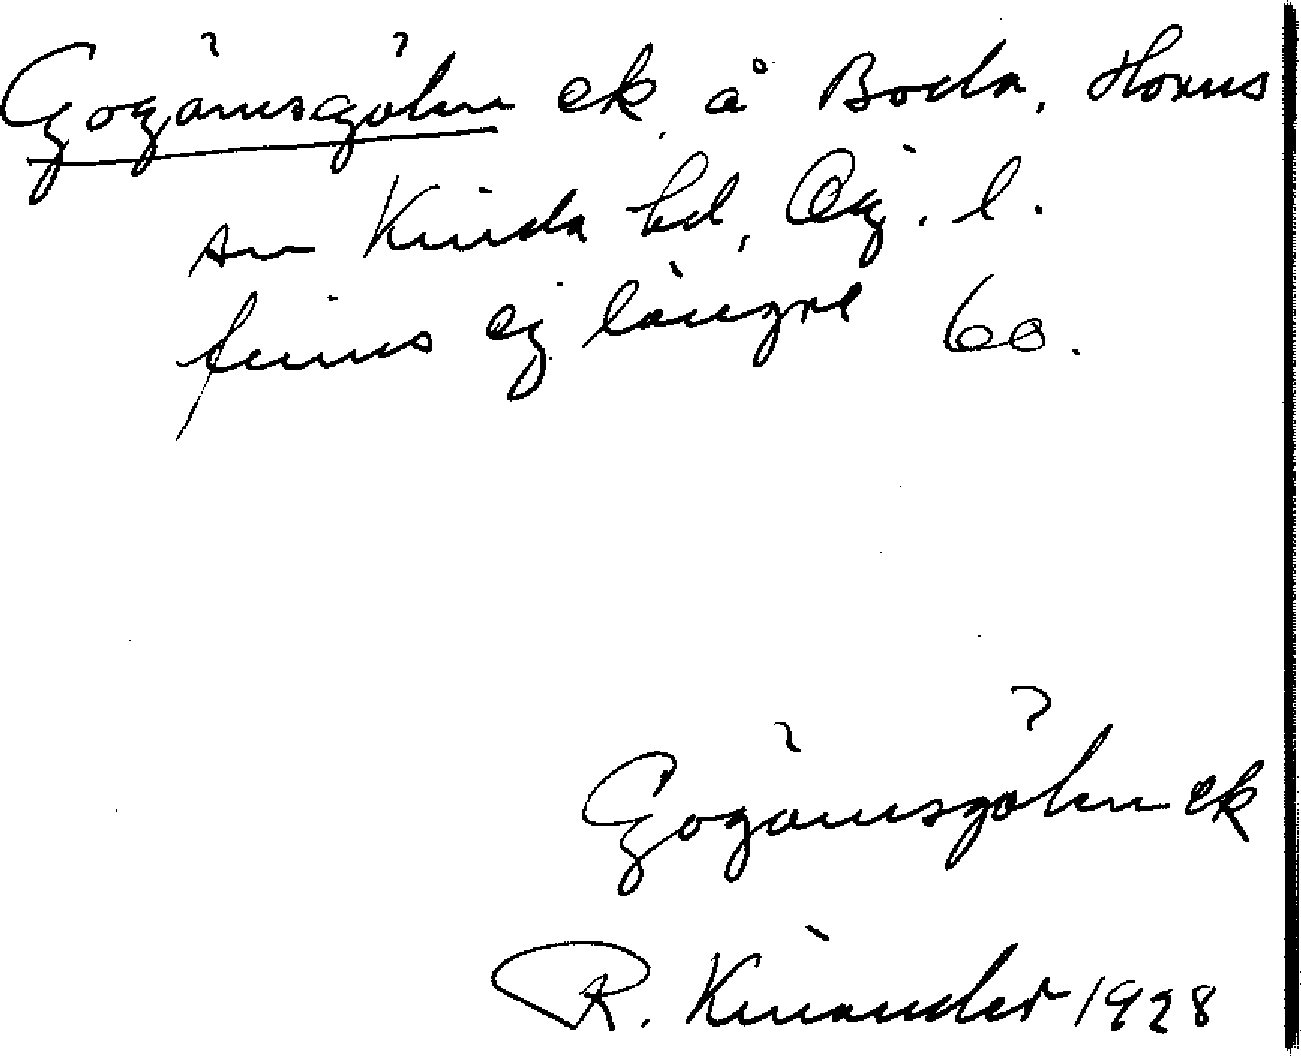 Gogåmsgölen ek å Boda, Horns
sn Kinda hd, Ög. l.
finns ej längre 60.
Gogåmsgölen ek
R. Kinander 1928